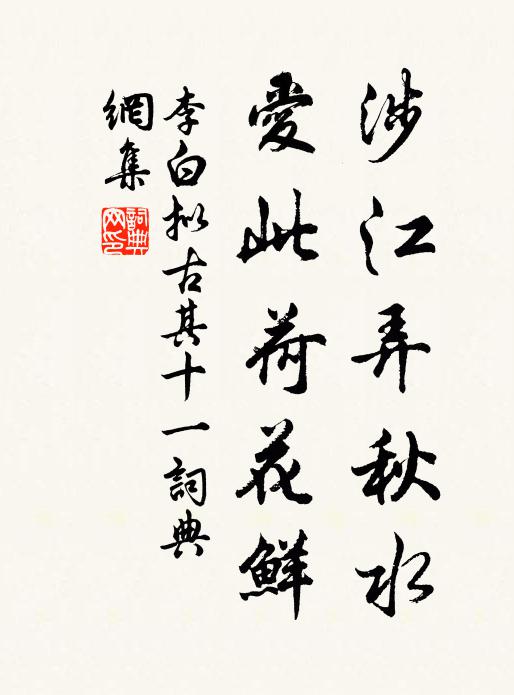 涉江弄秋水
愛此荷花鮮
李白拟古其十一詞典
網集
詞典
网印